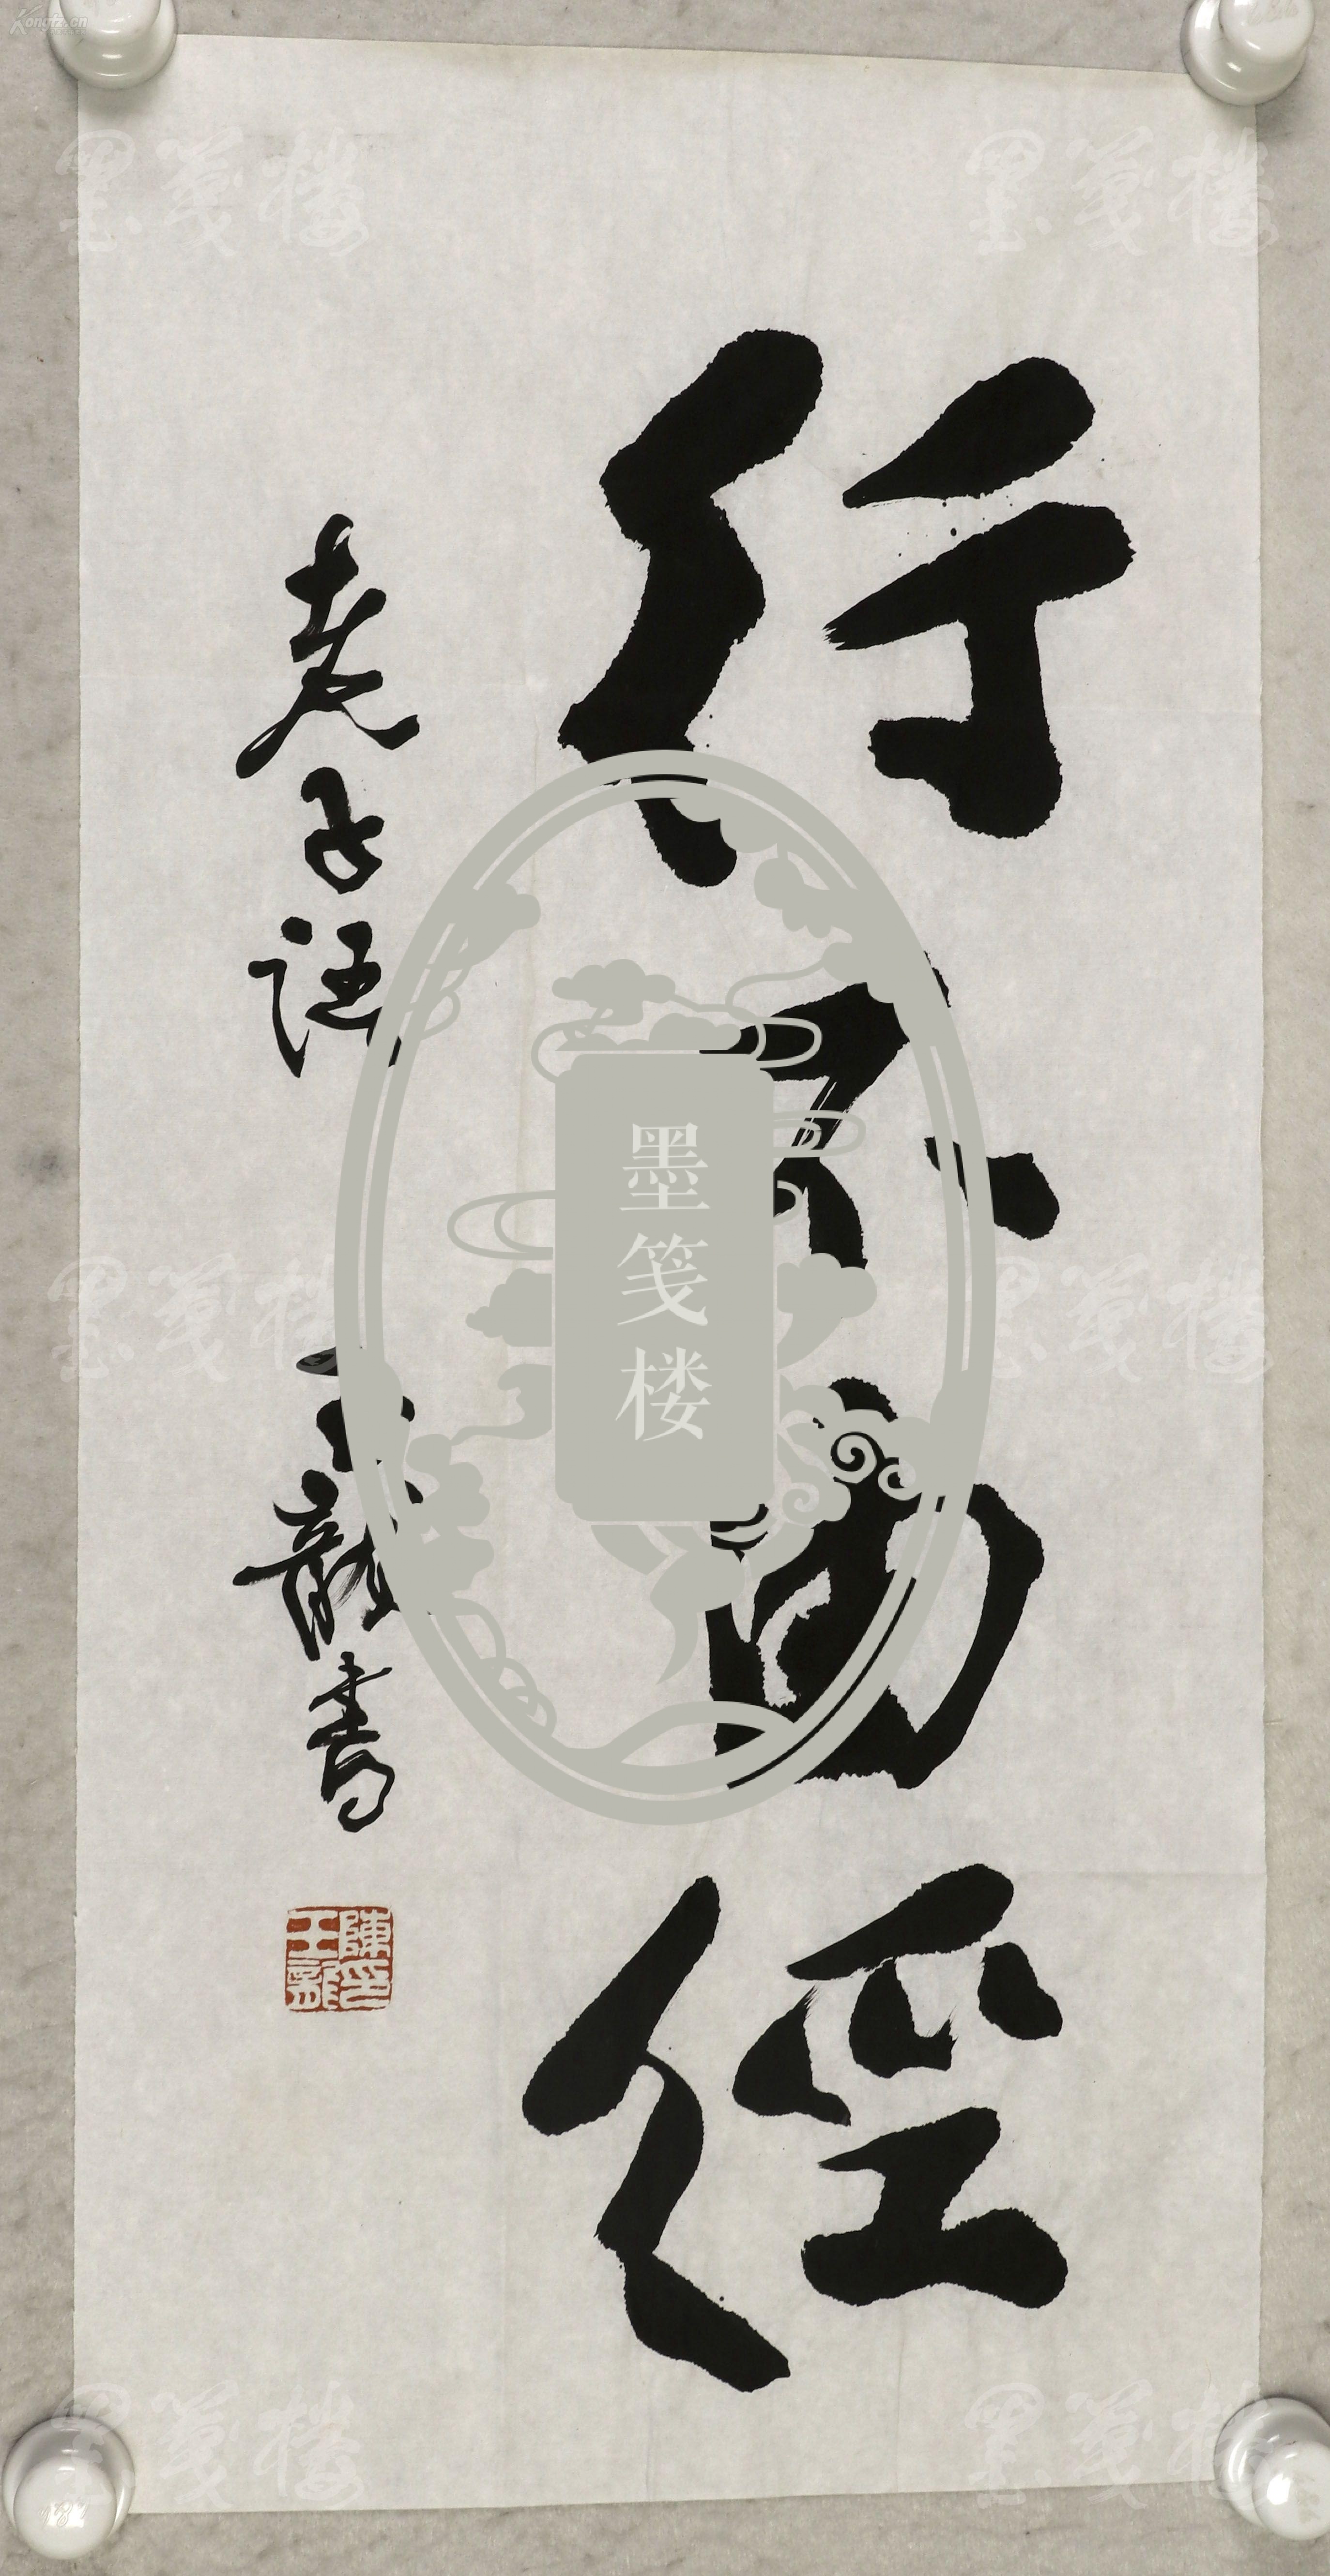 行不由徑
老子語
玉龍書
陳印玉龍
墨笺楼
墨笺楼
墨笺楼
墨笺楼
墨笺楼
墨笺楼
墨笺楼
Kongfz.cn